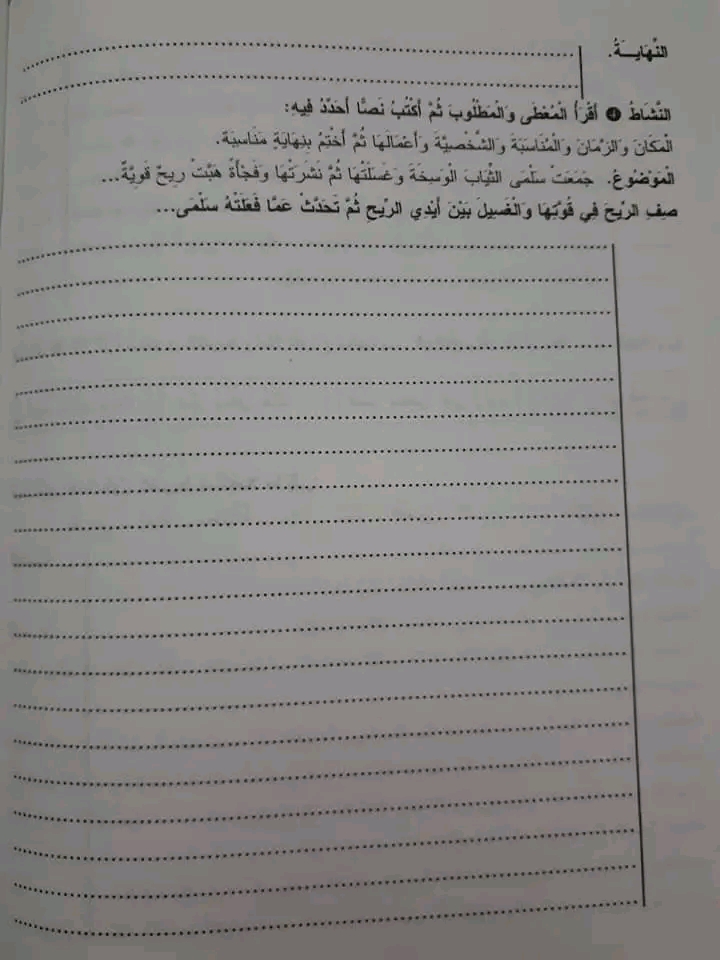 النِّهَايَــةُ.
النَّشَاطُ ❹ أَقْرَأُ الْمُعْطَى وَالْمَطْلُوبَ ثُمَّ أَكْتُبُ نَصًّا أُحَدِّدُ فِيهِ:
الْمَكَانَ وَالزَّمَانَ وَالْمُنَاسَبَةَ وَالشَّخْصِيَّةَ وَأَعْمَالَهَا ثُمَّ أَخْتِمُ بِنِهَايَةٍ مُنَاسِبَةٍ.
الْمَوْضُوعُ. جَمَعَتْ سَلْمَى الثِّيَابَ الْوَسِخَةَ وَغَسَلَتْهَا ثُمَّ نَشَرَتْهَا وَفَجْأَةً هَبَّتْ رِيحٌ قَوِيَّةٌ...
صِفِ الرِّيحَ فِي قُوَّتِهَا وَالْغَسِيلَ بَيْنَ أَيْدِي الرِّيحِ ثُمَّ تَحَدَّثْ عَمَّا فَعَلَتْهُ سَلْمَى...